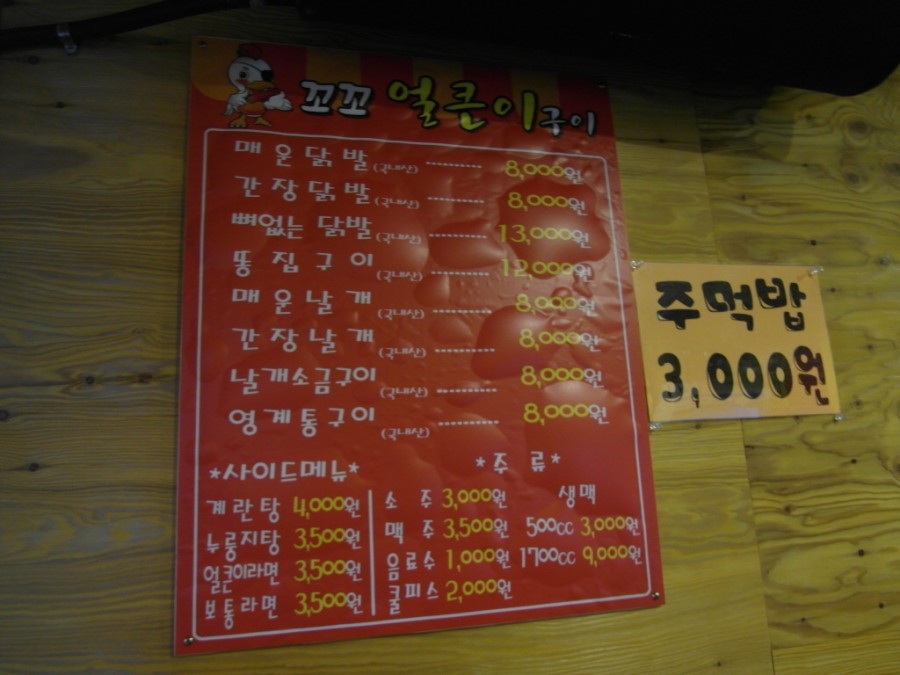 꼬꼬 얼큰이구이
매운닭발(국내산) 8,000원
간장닭발(국내산) 8,000원
뼈없는 닭발(국내산) 13,000원
똥집구이(국내산) 12,000원
매운날개(국내산) 8,000원
간장날개(국내산) 8,000원
날개소금구이(국내산) 8,000원
영계통구이(국내산) 8,000원
*사이드메뉴*
계란탕 4,000원
누룽지탕 3,500원
얼큰이라면 3,500원
보통라면 3,500원
*주류*
소주 3,000원
맥주 3,500원
음료수 1,000원
쿨피스 2,000원
생맥
500cc 3,000원
1700cc 9,000원
주먹밥
3,000원